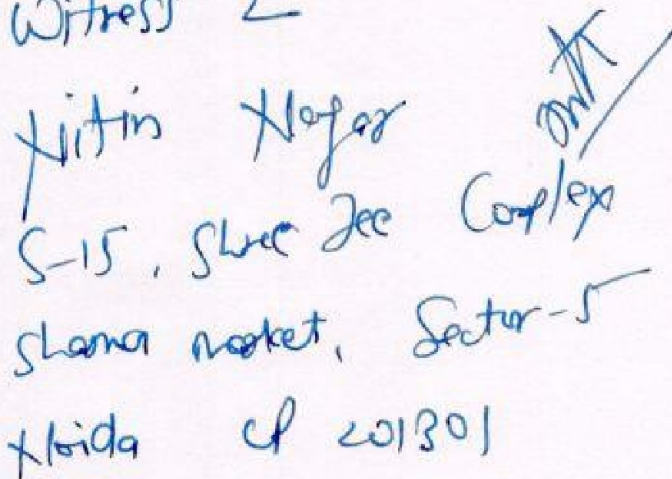 Witness 2
Nitin Nagar
S-15, Shree Jee Complex
Sharma market, Sector-5
Noida UP 201301